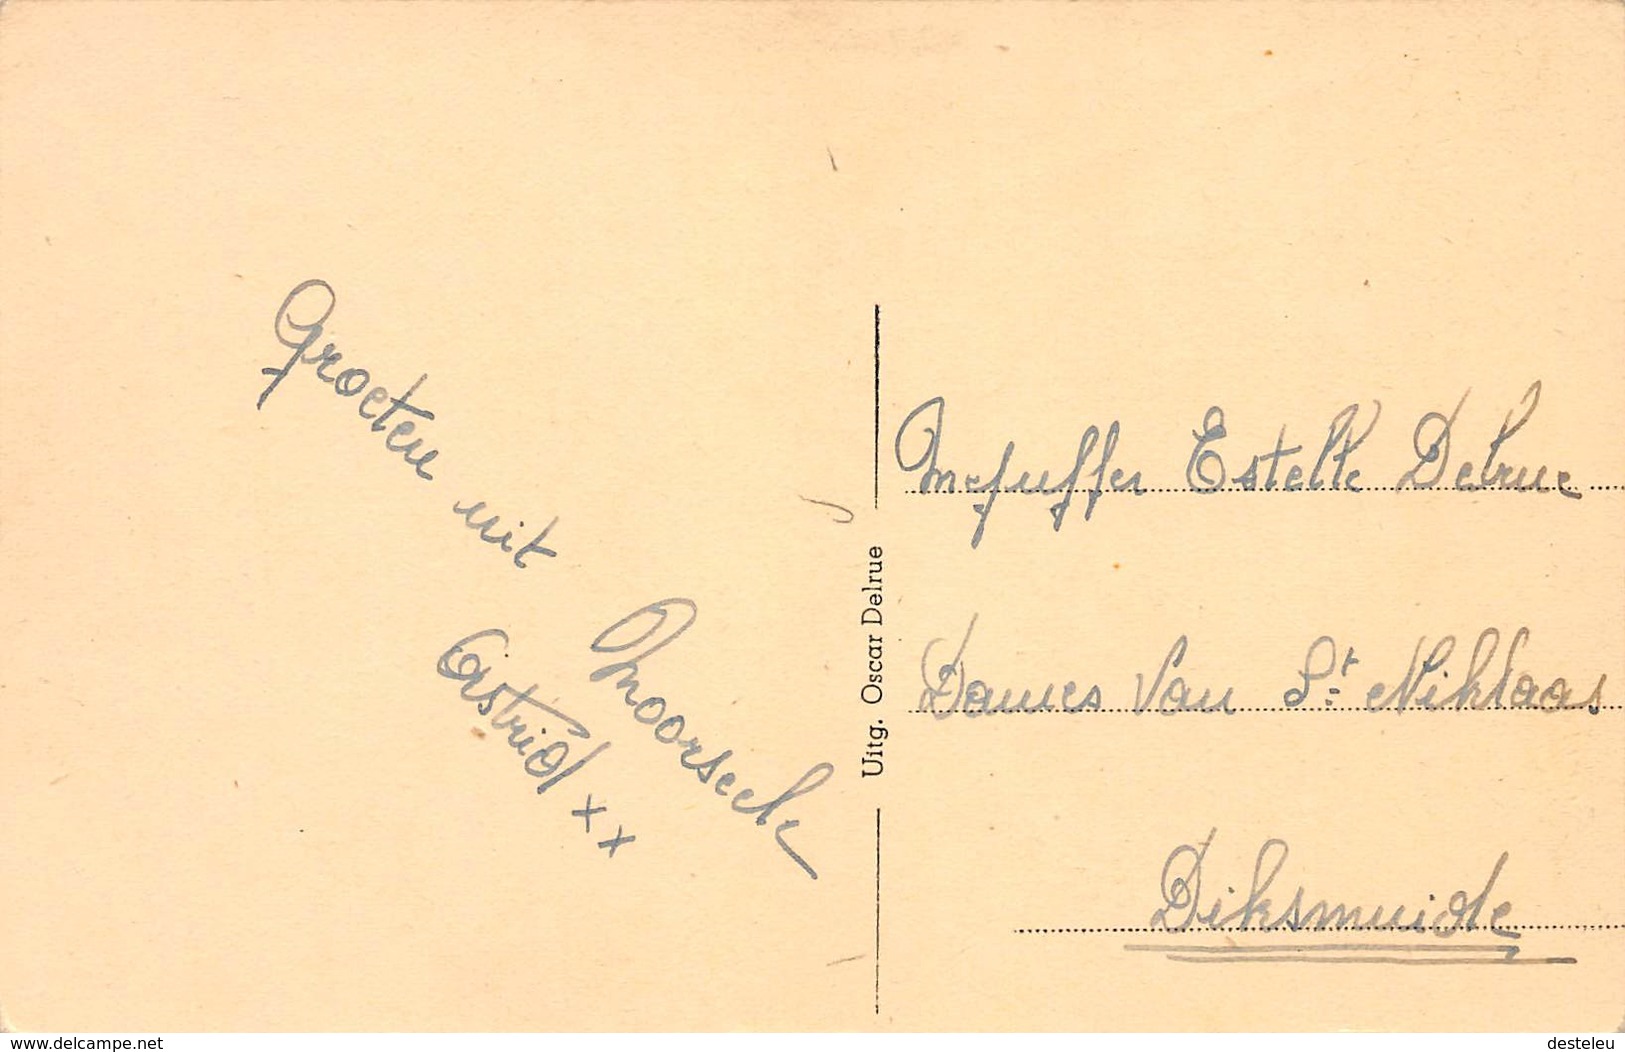 Groeten uit Moorsele
Astrid xx
Uitg. Oscar Delrue
Mejuffer Estelle Delrue
Dames Van St. Niklaas
Diksmuide
www.delcampe.net
desteleu